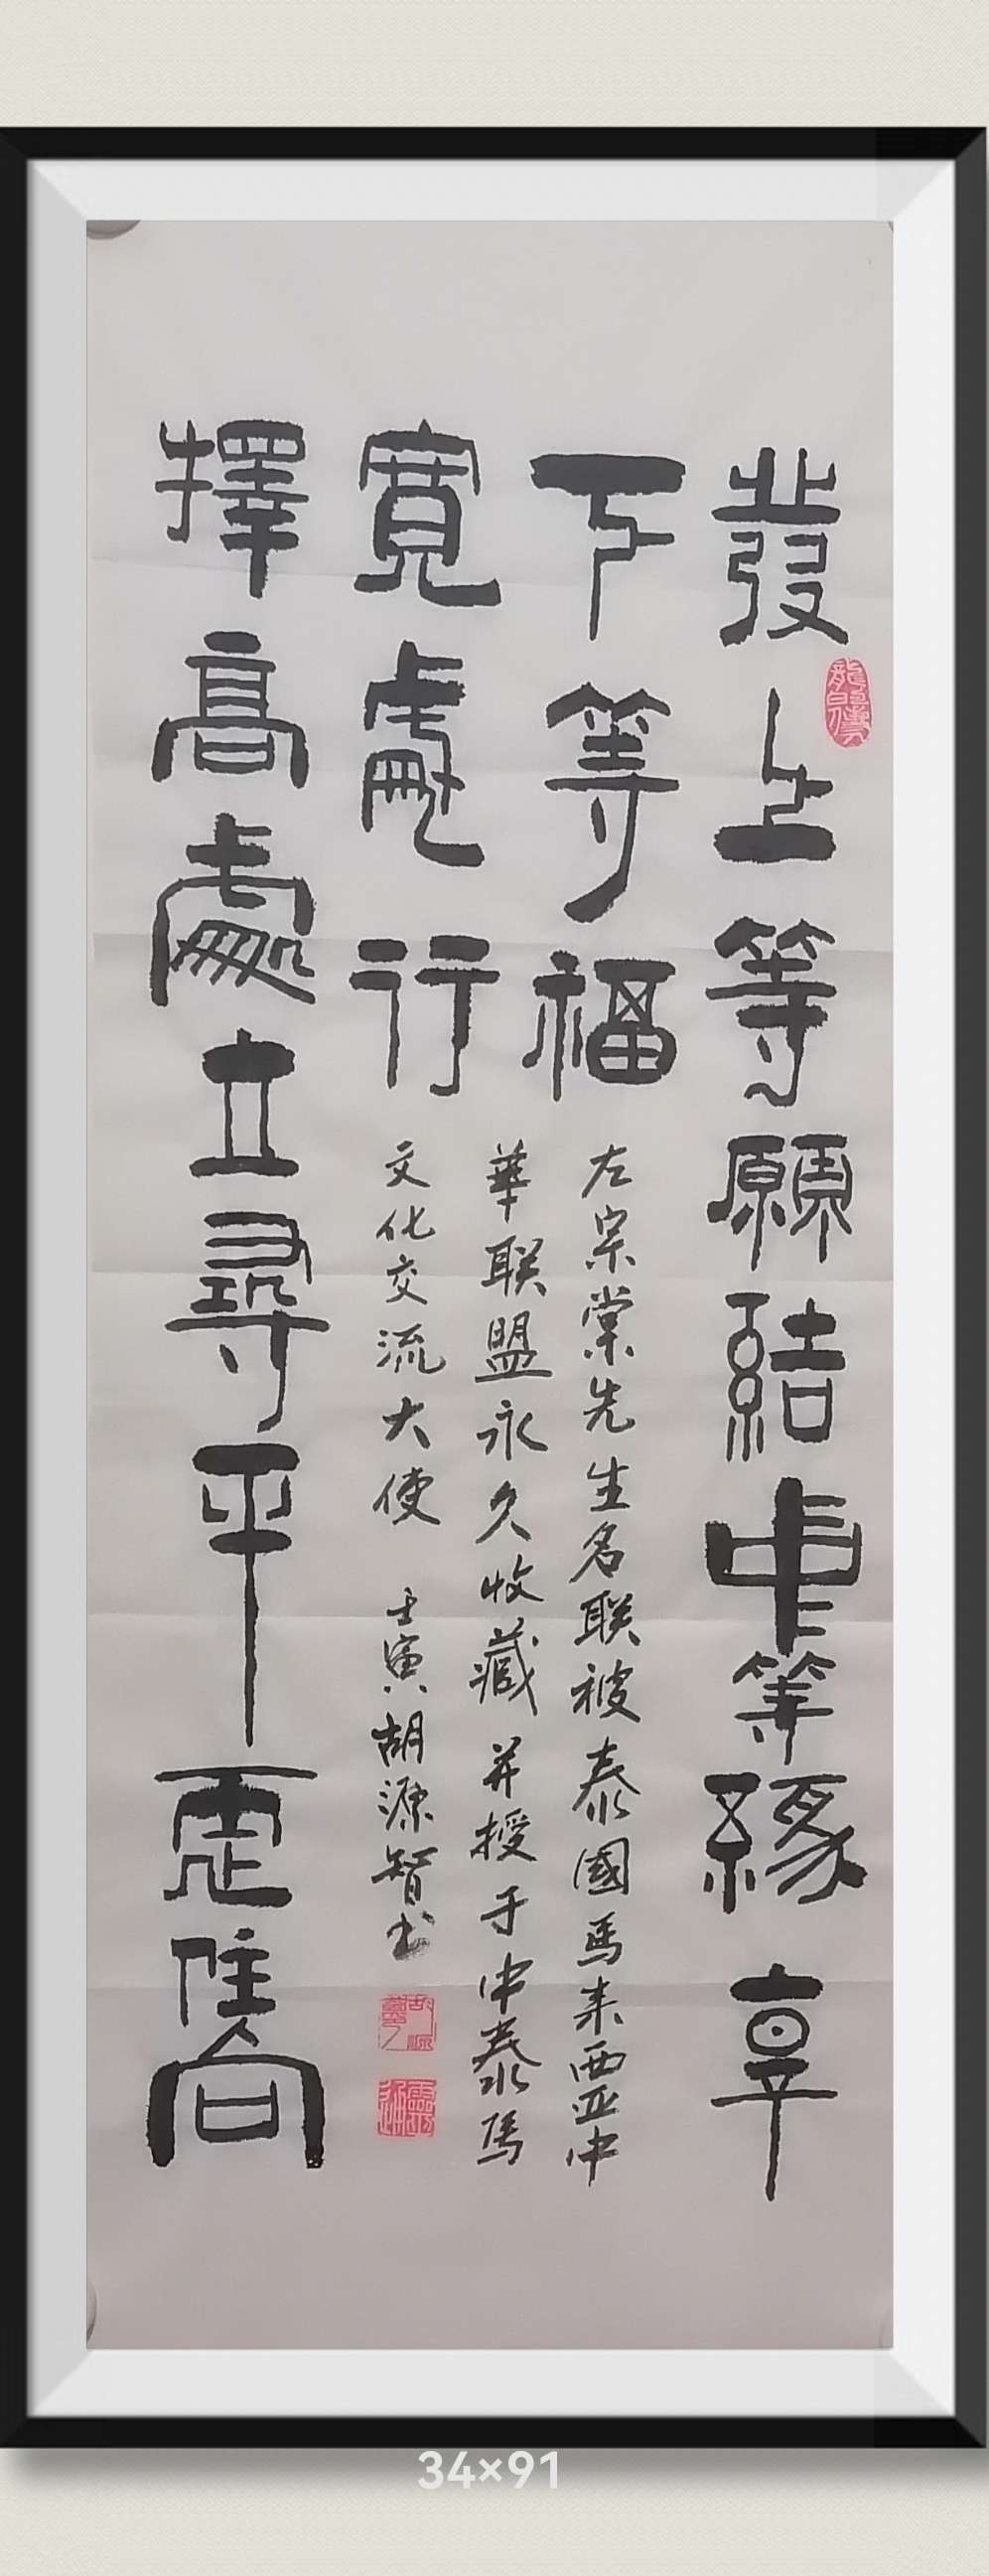 發上等願結中等緣享
下等福
擇高處立尋平處住向
寬處行
左宗棠先生名联被泰國馬来西亚中
華联盟永久收藏并授于中泰馬
文化交流大使 壬寅胡源智书
龍的傳人
34×91